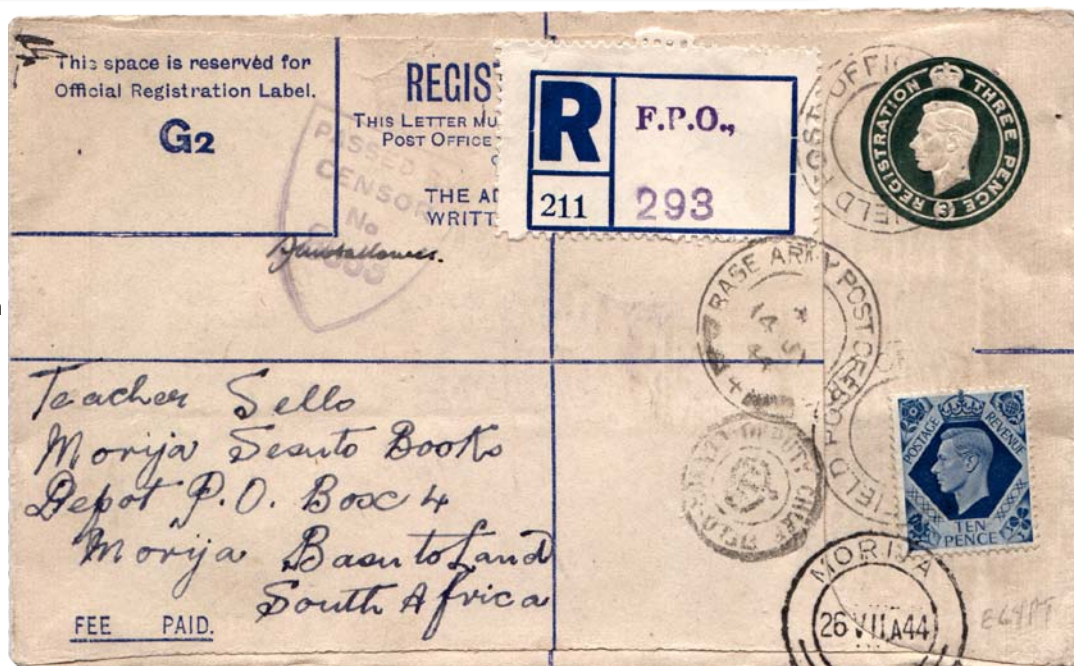 This space is reserved for
Official Registration Label.
G2
REGIS
THIS LETTER MU
POST OFFICE
THE AD
WRITT
PASSED
CENSOR
No
R
F.P.O.,
211
293
REGISTRATION THREE PENCE (3)
FIELD POST OFFICE
BASE ARMY POST OFF
14
DEPUTY CHIEF
FIELD PO
POSTAGE REVENUE
TEN
PENCE
Teacher Sello
Morija Sesuto Books
Depot P.O. Box 4
Morija Basutoland
South Africa
FEE PAID.
MORIJA
26 VII A44
EGYPT